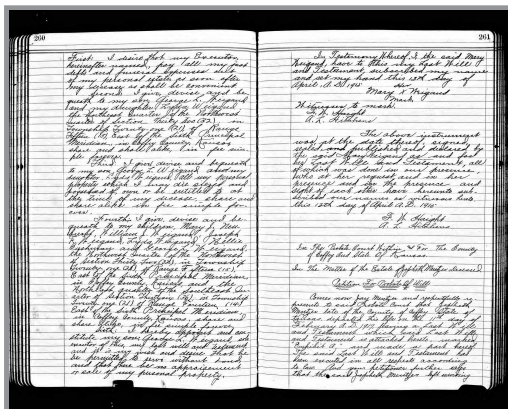 260
First. I desire that my Executor,
hereinafter named, pay all my just
debts and funeral expenses out
of my personal estate as soon after
my decease as shall be convenient
Second. I give, devise and be-
queath to my son George L. Weigand
and my daughter
the Northeast Quarter of the Northwest
Quarter of Section Thirty two (32), in
Township Twenty one (21), of Range
Fifteen (15) East of the Sixth Principal
Meridian, in Coffey County, Kansas
share and share alike, in fee sim-
ple forever.
Third. I give, devise and bequeath
to my son, George L. Weigand and my
daughter all my personal
property which I may die seized and
possessed of, or be entitled to at
the time of my decease, share and
share alike in fee simple for-
ever.
Fourth. I give, devise and be-
queath to my children, Mary
William Joseph
Weigand, Weigand,
and George L. Weigand
the Northwest Quarter of the Northwest
of Section Thirty Two (32), in Township
Twenty one (21) of Range Fifteen (15),
East of the Sixth Principal Meridian,
in Coffey County, Kansas and the
Northeast quarter of the
of Section in Township
Twenty one (21) of Range Fourteen (14)
East of the Sixth Principal Meridian
in Coffey County, Kansas, share and
share alike, in fee simple forever.
I hereby appoint and con-
stitute my son, George L. Weigand
of this my last will and Testament
and it is my wish and desire that he
be permitted to serve without bond
and that there be no appraisement
or sale of my personal property.
261
In Testimony Whereof, I, the said Mary
Weigand, have to this my Last Will
and Testament, subscribed my name
and set my hand this 13th day of
April A.D. 1915
her
Mary X Weigand
mark
Witnesses to mark.
F. H.
A. L.
The above instrument
was at the date thereof signed
sealed and published and declared by
the said Mary Weigand as and for
her Last Will and Testament, all
of which was done in our presence,
who at her request and in her
presence and in the presence and
sight of each other have hereunto sub-
scribed our names as witnesses hereto
this 13th day of April A.D. 1915
F. H.
A. L.
In The Probate Court Within & For The County
of Coffey And State Of Kansas
In The Matter of the Estate of deceased
Petition For Probate Of Will
Comes now Jay and respectfully re-
presents to the Probate Court that
late of the County of Coffey, State of
Kansas departed this life on the day of
February A.D. leaving a Last Will
and Testament, which said Last Will
and Testament is attached hereto marked
Exhibit A. and made a part hereof.
The said Last Will and Testament has
been executed in all respects according
to law. And your petitioner further says
that the said left surviving